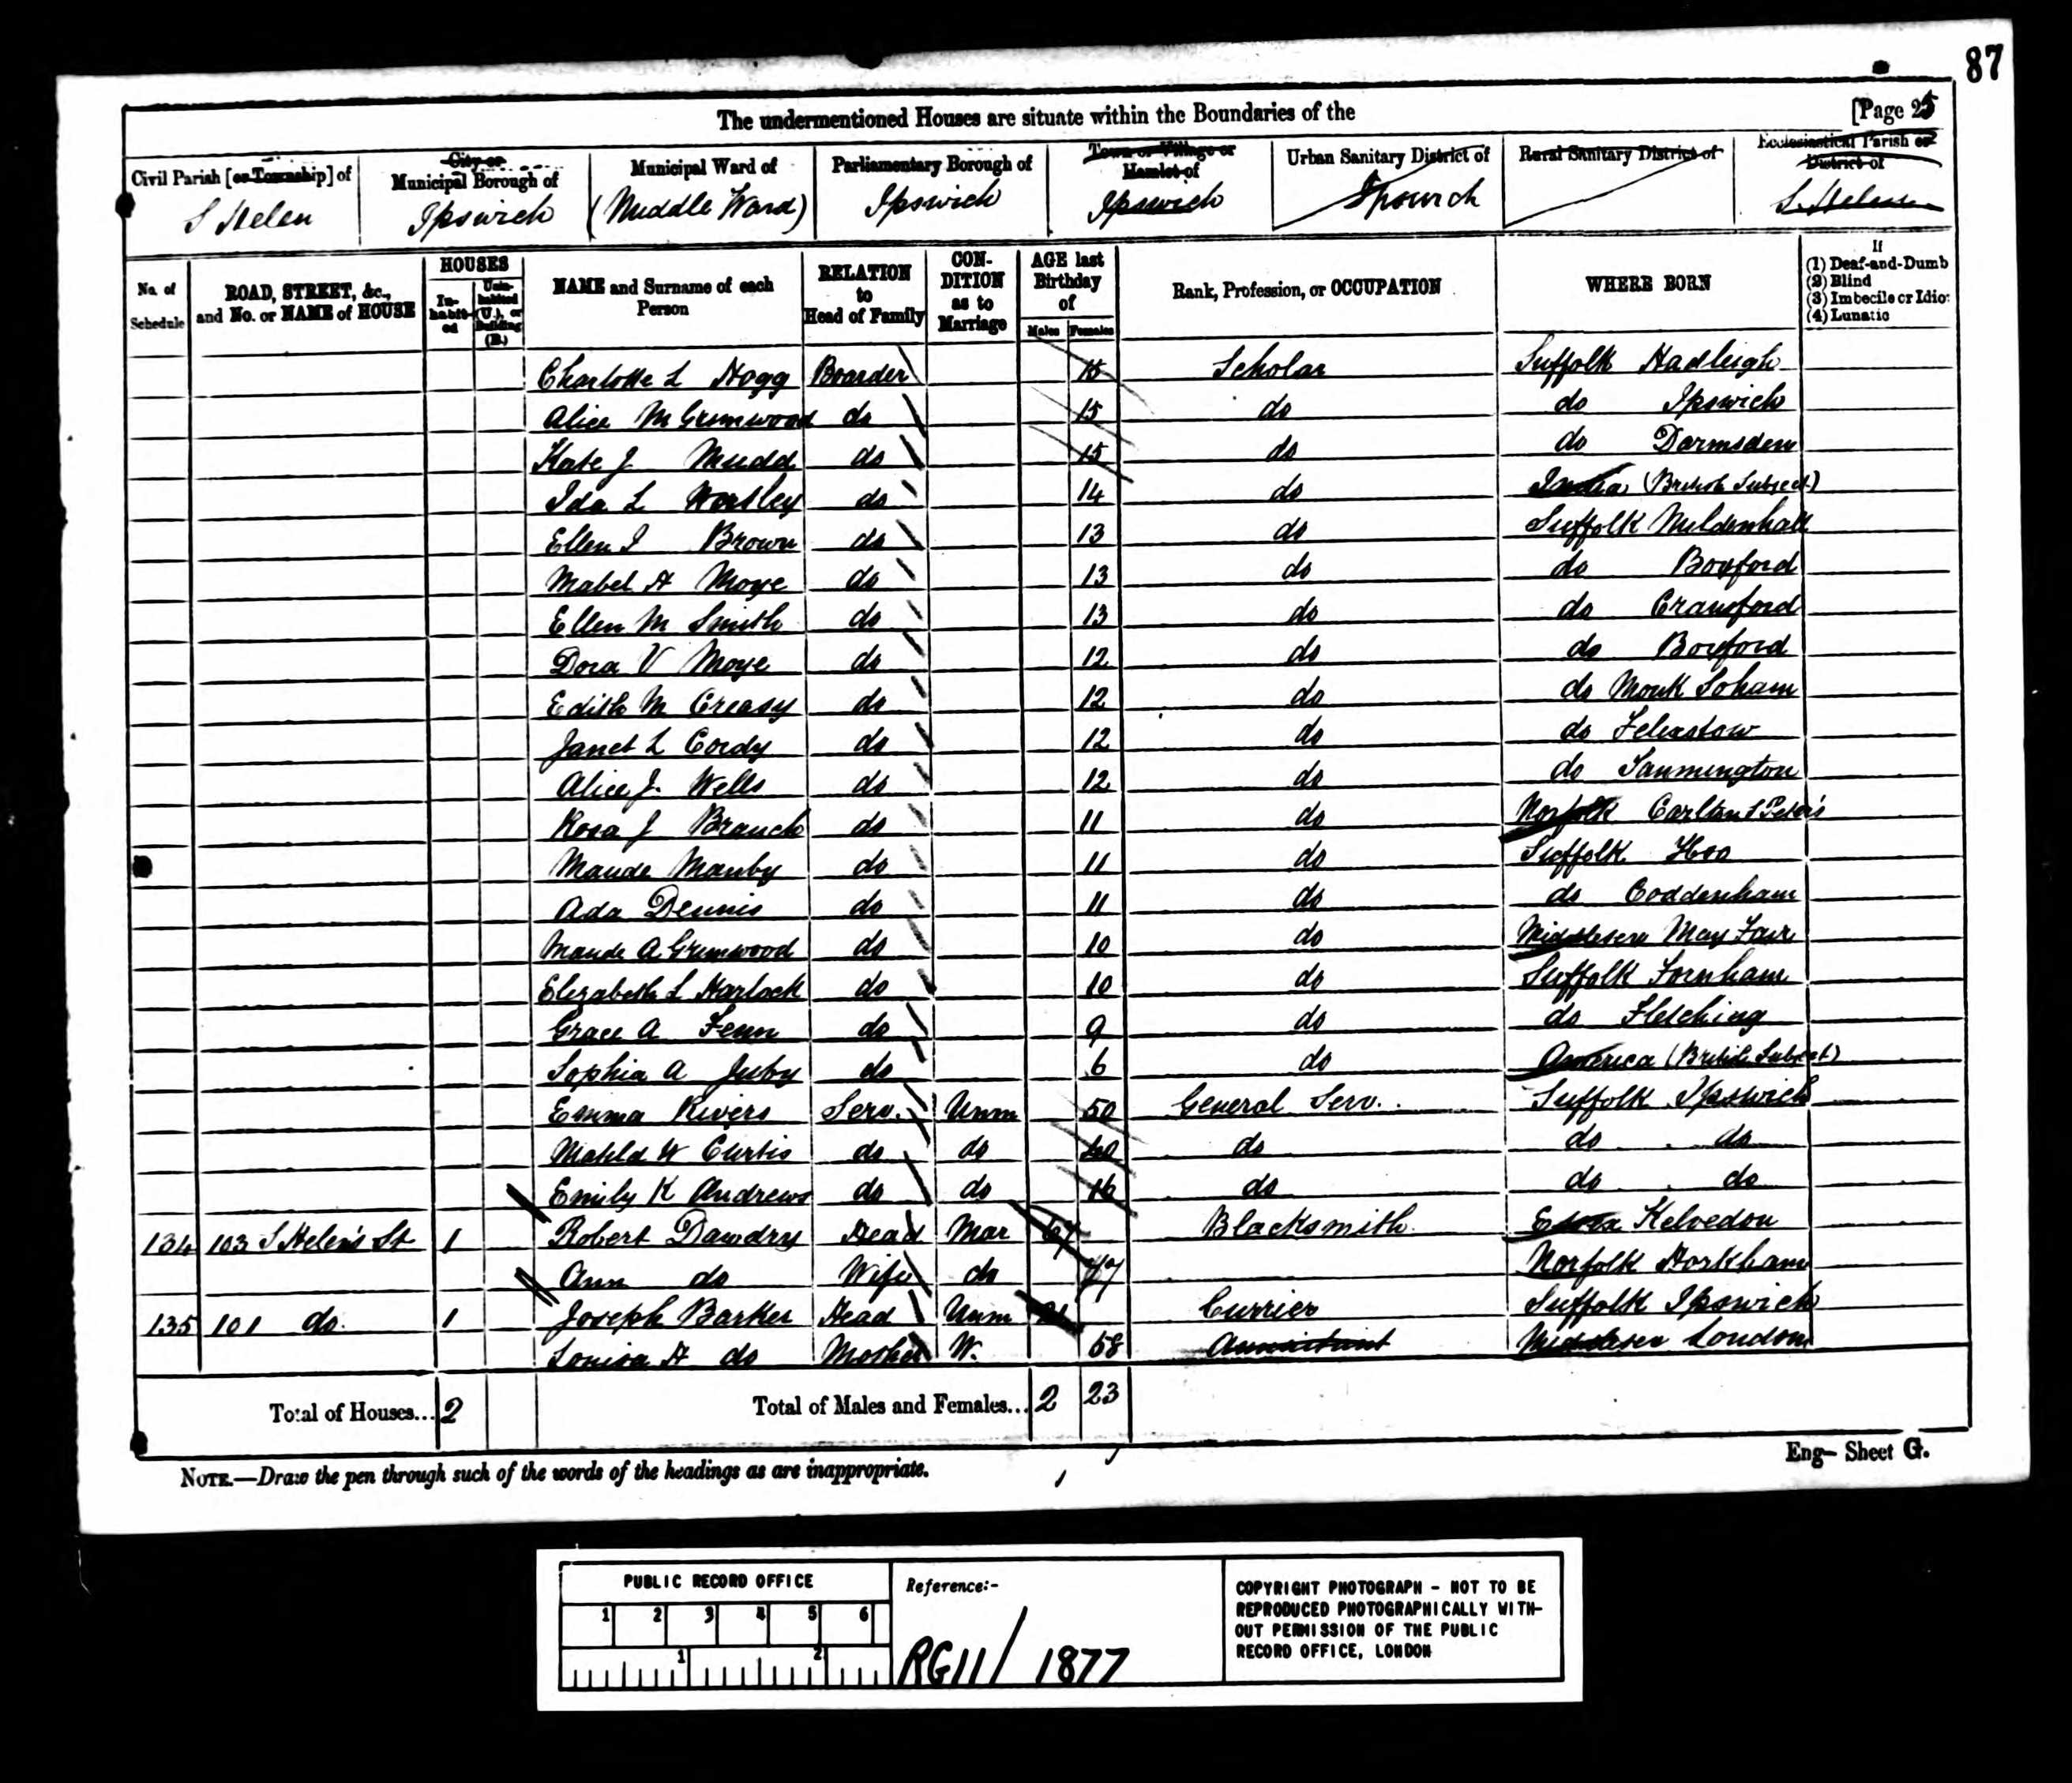 87
The undermentioned Houses are situate within the Boundaries of the [Page 25
Civil Parish [or Township] of City or Municipal Borough of Municipal Ward of Parliamentary Borough of Town or Village or Hamlet of Urban Sanitary District of Rural Sanitary District of Ecclesiastical Parish or District of
S Helen Ipswich (Middle Ward) Ipswich Ipswich Ipswich S. Helens
No. of Schedule ROAD, STREET, &c., and No. or NAME of HOUSE HOUSES Inhabited Uninhabited (U.), or Building (B.) NAME and Surname of each Person RELATION to Head of Family CONDITION as to Marriage AGE last Birthday of Males Females Rank, Profession, or OCCUPATION WHERE BORN If (1) Deaf-and-Dumb (2) Blind (3) Imbecile or Idiot (4) Lunatic
Charlotte L Hogg Boarder Scholar Suffolk Hadleigh
Alice M Grimwood do 15 do do Ipswich
Kate J Mudd do 15 do do Darmsden
Ida L do 14 do India (British Subject)
Ellen I Brown do 13 do Suffolk Mildenhall
Mabel A Moye do 13 do do Boxford
Ellen M Smith do 13 do do Cransford
Dora V Moye do 12 do do Boxford
Edith M Creasy do 12 do do Monk Soham
Janet L Cordy do 12 do do Felixstow
Alice J. Wells do 12 do do
Rosa J Branch do 11 do Norfolk Carlton S Peter's
Maude Manby do 11 do Suffolk Hoo
Ada Dennis do 11 do do Coddenham
Maude A Grimwood do 10 do Middlesex May Fair
Elizabeth L Harlock do 10 do Suffolk Fornham
Grace A Fenn do 9 do do Fletching
Sophia A Juby do 6 do America (British Subject)
Emma Rivers Serv. Unm 50 General Serv. Suffolk Ipswich
Matilda W Curtis do do 40 do do do
Emily K Andrews do do 16 do do do
134 103 S Helen's St 1 Robert Dawdry Head Mar 67 Blacksmith Essex Kelvedon
Ann do Wife do Norfolk
135 101 do. 1 Joseph Barker Head Unm Currier Suffolk Ipswich
Louisa H do Mother W. 58 Annuitant Middlesex London
Total of Houses... 2 Total of Males and Females... 2 23
NOTE.—Draw the pen through such of the words of the headings as are inappropriate.
Eng- Sheet G.
PUBLIC RECORD OFFICE
1 2 3 4 5 6
1 2
Reference:-
RG11/ 1877
COPYRIGHT PHOTOGRAPH - NOT TO BE
REPRODUCED PHOTOGRAPHICALLY WITH-
OUT PERMISSION OF THE PUBLIC
RECORD OFFICE, LONDON